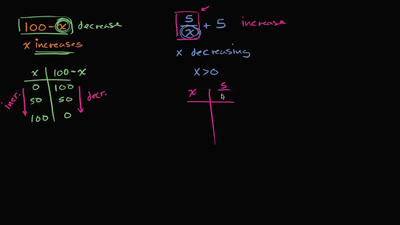 100-x decrease
x increases
x | 100-x
0 | 100
50 | 50
100 | 0
incr.
decr.
5/x + 5 increase
x decreasing
x>0
x | 5/